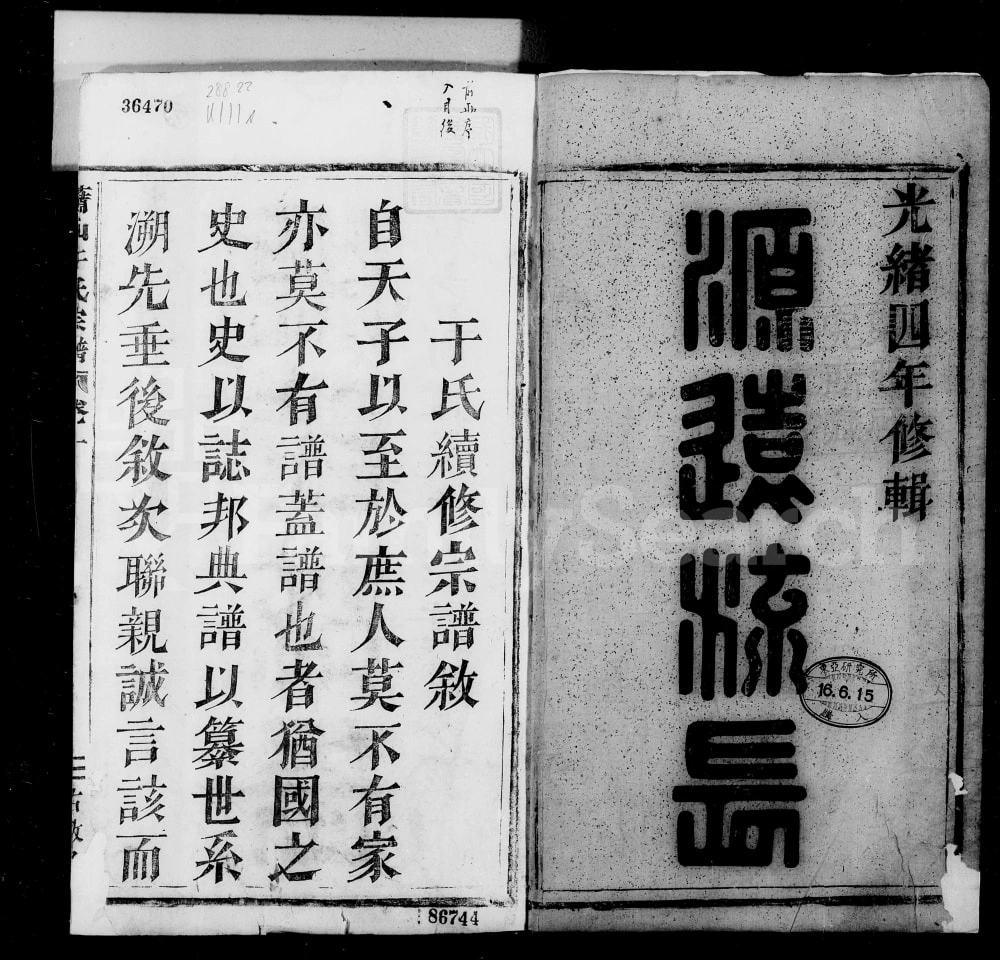 光緒四年修輯
源遠流長
東亞研究所
16.6.15
購入
干氏續修宗譜敘
自天子以至於庶人莫不有家
亦莫不有譜蓋譜也者猶國之
史也史以誌邦典譜以纂世系
溯先垂後敘次聯親誠言該而
36470
288.22
86744
FamilySearch